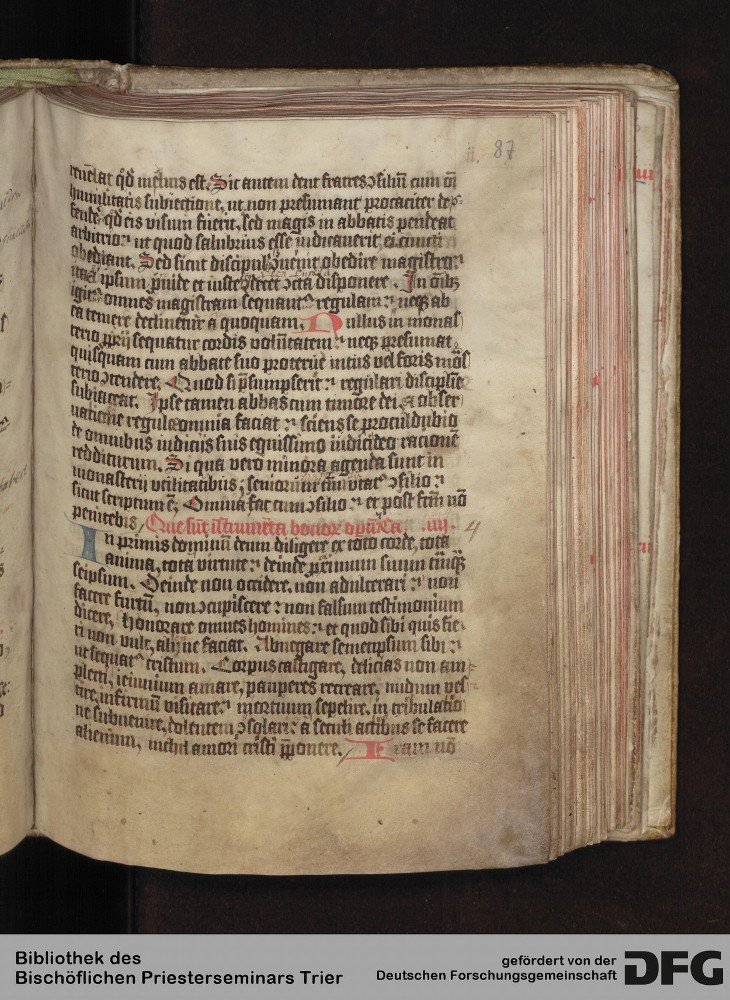 ii. 87
reuelat qđ melius est. Sic autem dent fratres ↄsiliū cum oī
humilitatis subiectione, ut non presumant procaciter de
fende qđ eis visum fuerit, sed magis in abbatis pendeat
arbitrio ut quod salubrius esse iudicauerit ei cuncti
obediant. Sed sicut discipul ↄuenit obedire magistro
ita ipsum puide et iuste decet ↄcta disponere. In oībꝫ
igit omnes magistram sequant regulam neqꝫ ab
ea temere declinetur a quoquam. Nullus in monas
terio pprij sequatur cordis volūtatem neqꝫ presumat
quisquam cum abbate suo proterue intus vel foris mōs
terio ↄtendere. Quod si psumpserit regulari discipline
subiaceat. Ipse tamen abbas cum timore dei et obser
uatione regule omnia faciat sciens se procul dubio
de omnibus iudicijs suis equissimo iudici deo racionē
redditurum. Si qua vero minora agenda sunt in
monasterij utilitatibus, seniorū tm vtat ↄsilio
sicut scriptum ē, Omnia fac cum ↄsilio et post fcm nō
penitebis, Que sūt istrumēta bonor opūm Ca. iiij. 4
In primis dominū deum diligere ex toto corde, tota
anima, tota virtute deinde pximum suum tāqꝫ
seipsum. Deinde non occidere, non adulterari non
facere furtū, non ↄcupiscere non falsum testimonium
dicere, honorare omnes homines et quod sibi quis fie
ri non vult, alij ne faciat. Abnegare semetipsum sibi
ut sequat cristum. Corpus castigare, delicias non am
plecti, ieiunium amare, pauperes recreare, nudum ves
tire, infirmū visitare mortuum sepelire, in tribulatio
ne subuenire, dolentem ↄsolari a seculi actibus se facere
alienum, nichil amori cristi pponere. Iram nō
Bibliothek des
Bischöflichen Priesterseminars Trier
gefördert von der
Deutschen Forschungsgemeinschaft
DFG